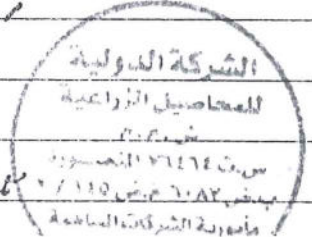 الشركة الدولية
للمحاصيل الزراعية
ش.م.م
س.ت ٢٦٤٦٤ المنصورة
ب.ض ٦٠٨٢ م.ض ١٤٥ / ٢
مأمورية الشركات المساهمة